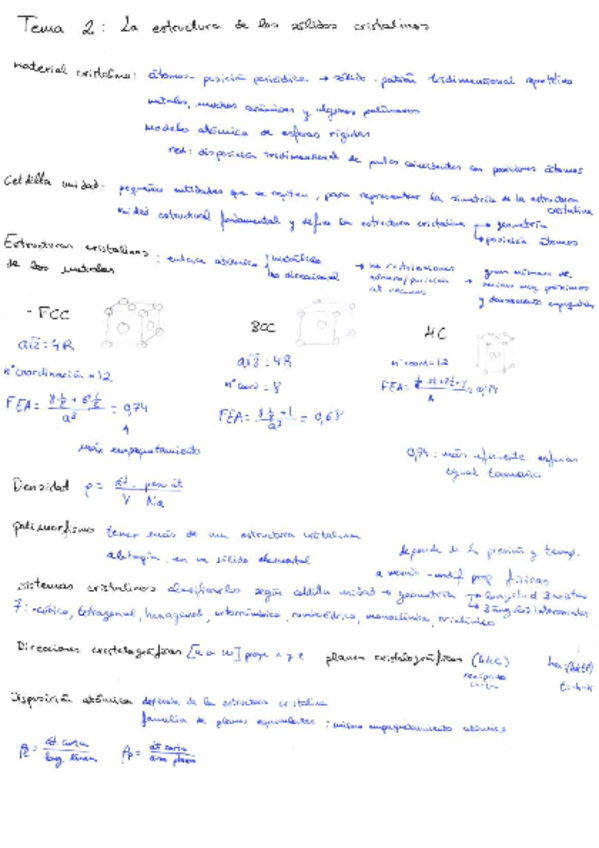 Tema 2: La estructura de los sólidos cristalinos
material cristalino: átomos - posición periódica → sólido - patrón tridimensional repetitivo
metales, muchos cerámicos y algunos polímeros
modelo atómico de esferas rígidas
red: disposición tridimensional de puntos coincidentes con posiciones átomos
Celdilla unidad - pequeñas entidades que se repiten, para representar la simetría de la estructura cristalina
unidad estructural fundamental y define la estructura cristalina → geometría
→ posición átomos
Estructuras cristalinas de los metales: enlace atómico metálico
no direccional
→ no restricciones número/posición át vecinos → gran número de vecinos muy próximos y densamente empaquetados
- FCC
BCC
HC
a√2 = 4R
a√3 = 4R
nº coordinación = 12
nº coord = 8
nº coord = 12
FEA = = 0,74
FEA = = 0,68
FEA =
más empaquetamiento
0,74: más eficiente esferas igual tamaño
Densidad ρ = át. peso át / V Na
polimorfismo tener más de una estructura cristalina
alotropía en un sólido elemental
depende de la presión y temp.
a menudo - modif prop físicas
sistemas cristalinos clasificarlos según celdilla unidad → geometría → longitud 3 aristas
→ 3 ángulos interaxiales
7: cúbico, tetragonal, hexagonal, ortorrómbico, romboédrico, monoclínico, triclínico
Direcciones cristalográficas [u v w] planos cristalográficos (hkl)
Disposición atómica depende de la estructura cristalina
familia de planos equivalentes: mismo empaquetamiento atómico